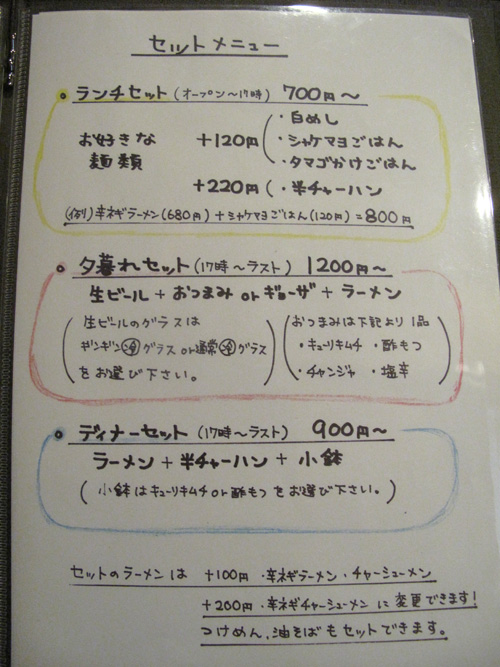 セットメニュー
ランチセット(オープン〜17時) 700円〜
お好きな麺類 +120円(・白めし
・シャケマヨごはん
・タマゴかけごはん
+220円(・半チャーハン
(例)辛ネギラーメン(680円)+シャケマヨごはん(120円)=800円
夕暮れセット(17時〜ラスト) 1200円〜
生ビール+おつまみorギョーザ+ラーメン
(生ビールのグラスは
ギンギン冷グラスor通常冷グラス
をお選び下さい。)
(おつまみは下記より1品
・キューリキムチ ・酢もつ
・チャンジャ ・塩辛)
ディナーセット(17時〜ラスト) 900円〜
ラーメン+半チャーハン+小鉢
(小鉢はキューリキムチor酢もつをお選び下さい。)
セットのラーメンは +100円・辛ネギラーメン・チャーシューメン
+200円・辛ネギチャーシューメンに変更できます!
つけめん、油そばもセットできます。